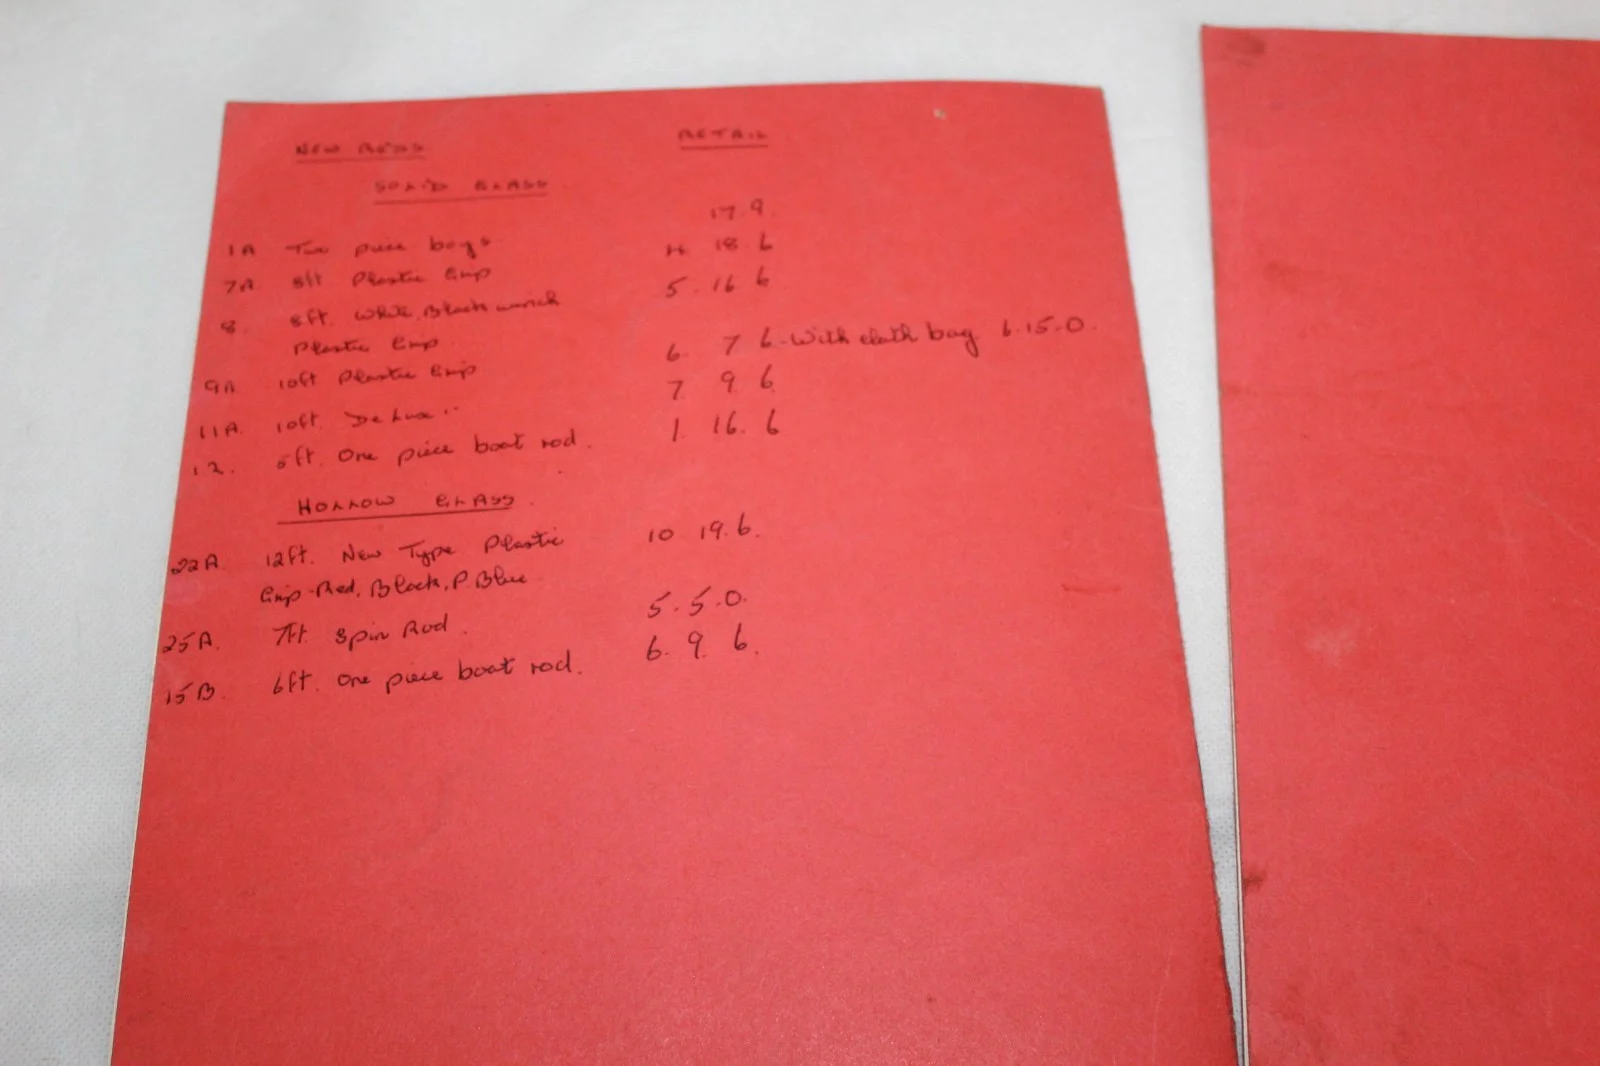 NEW RODS RETAIL
SOLID GLASS
1A Two piece boys 17.9.
7A 8ft Plastic Grip 4. 18. 6
8. 8ft. White, Black winch 5. 16 6
Plastic Grip
9A 10ft Plastic Grip 6. 7 6 - With cloth bag 6.15.0.
11A. 10ft. De Luxe " 7. 9. 6
12. ft. One piece boat rod. 1. 16. 6
HOLLOW GLASS.
22A. 12ft. New Type Plastic 10 19.6.
Grip - Red, Black, P. Blue
25A. 7ft Spin Rod. 5. 5. 0.
15B. 6ft. One piece boat rod. 6. 9. 6.